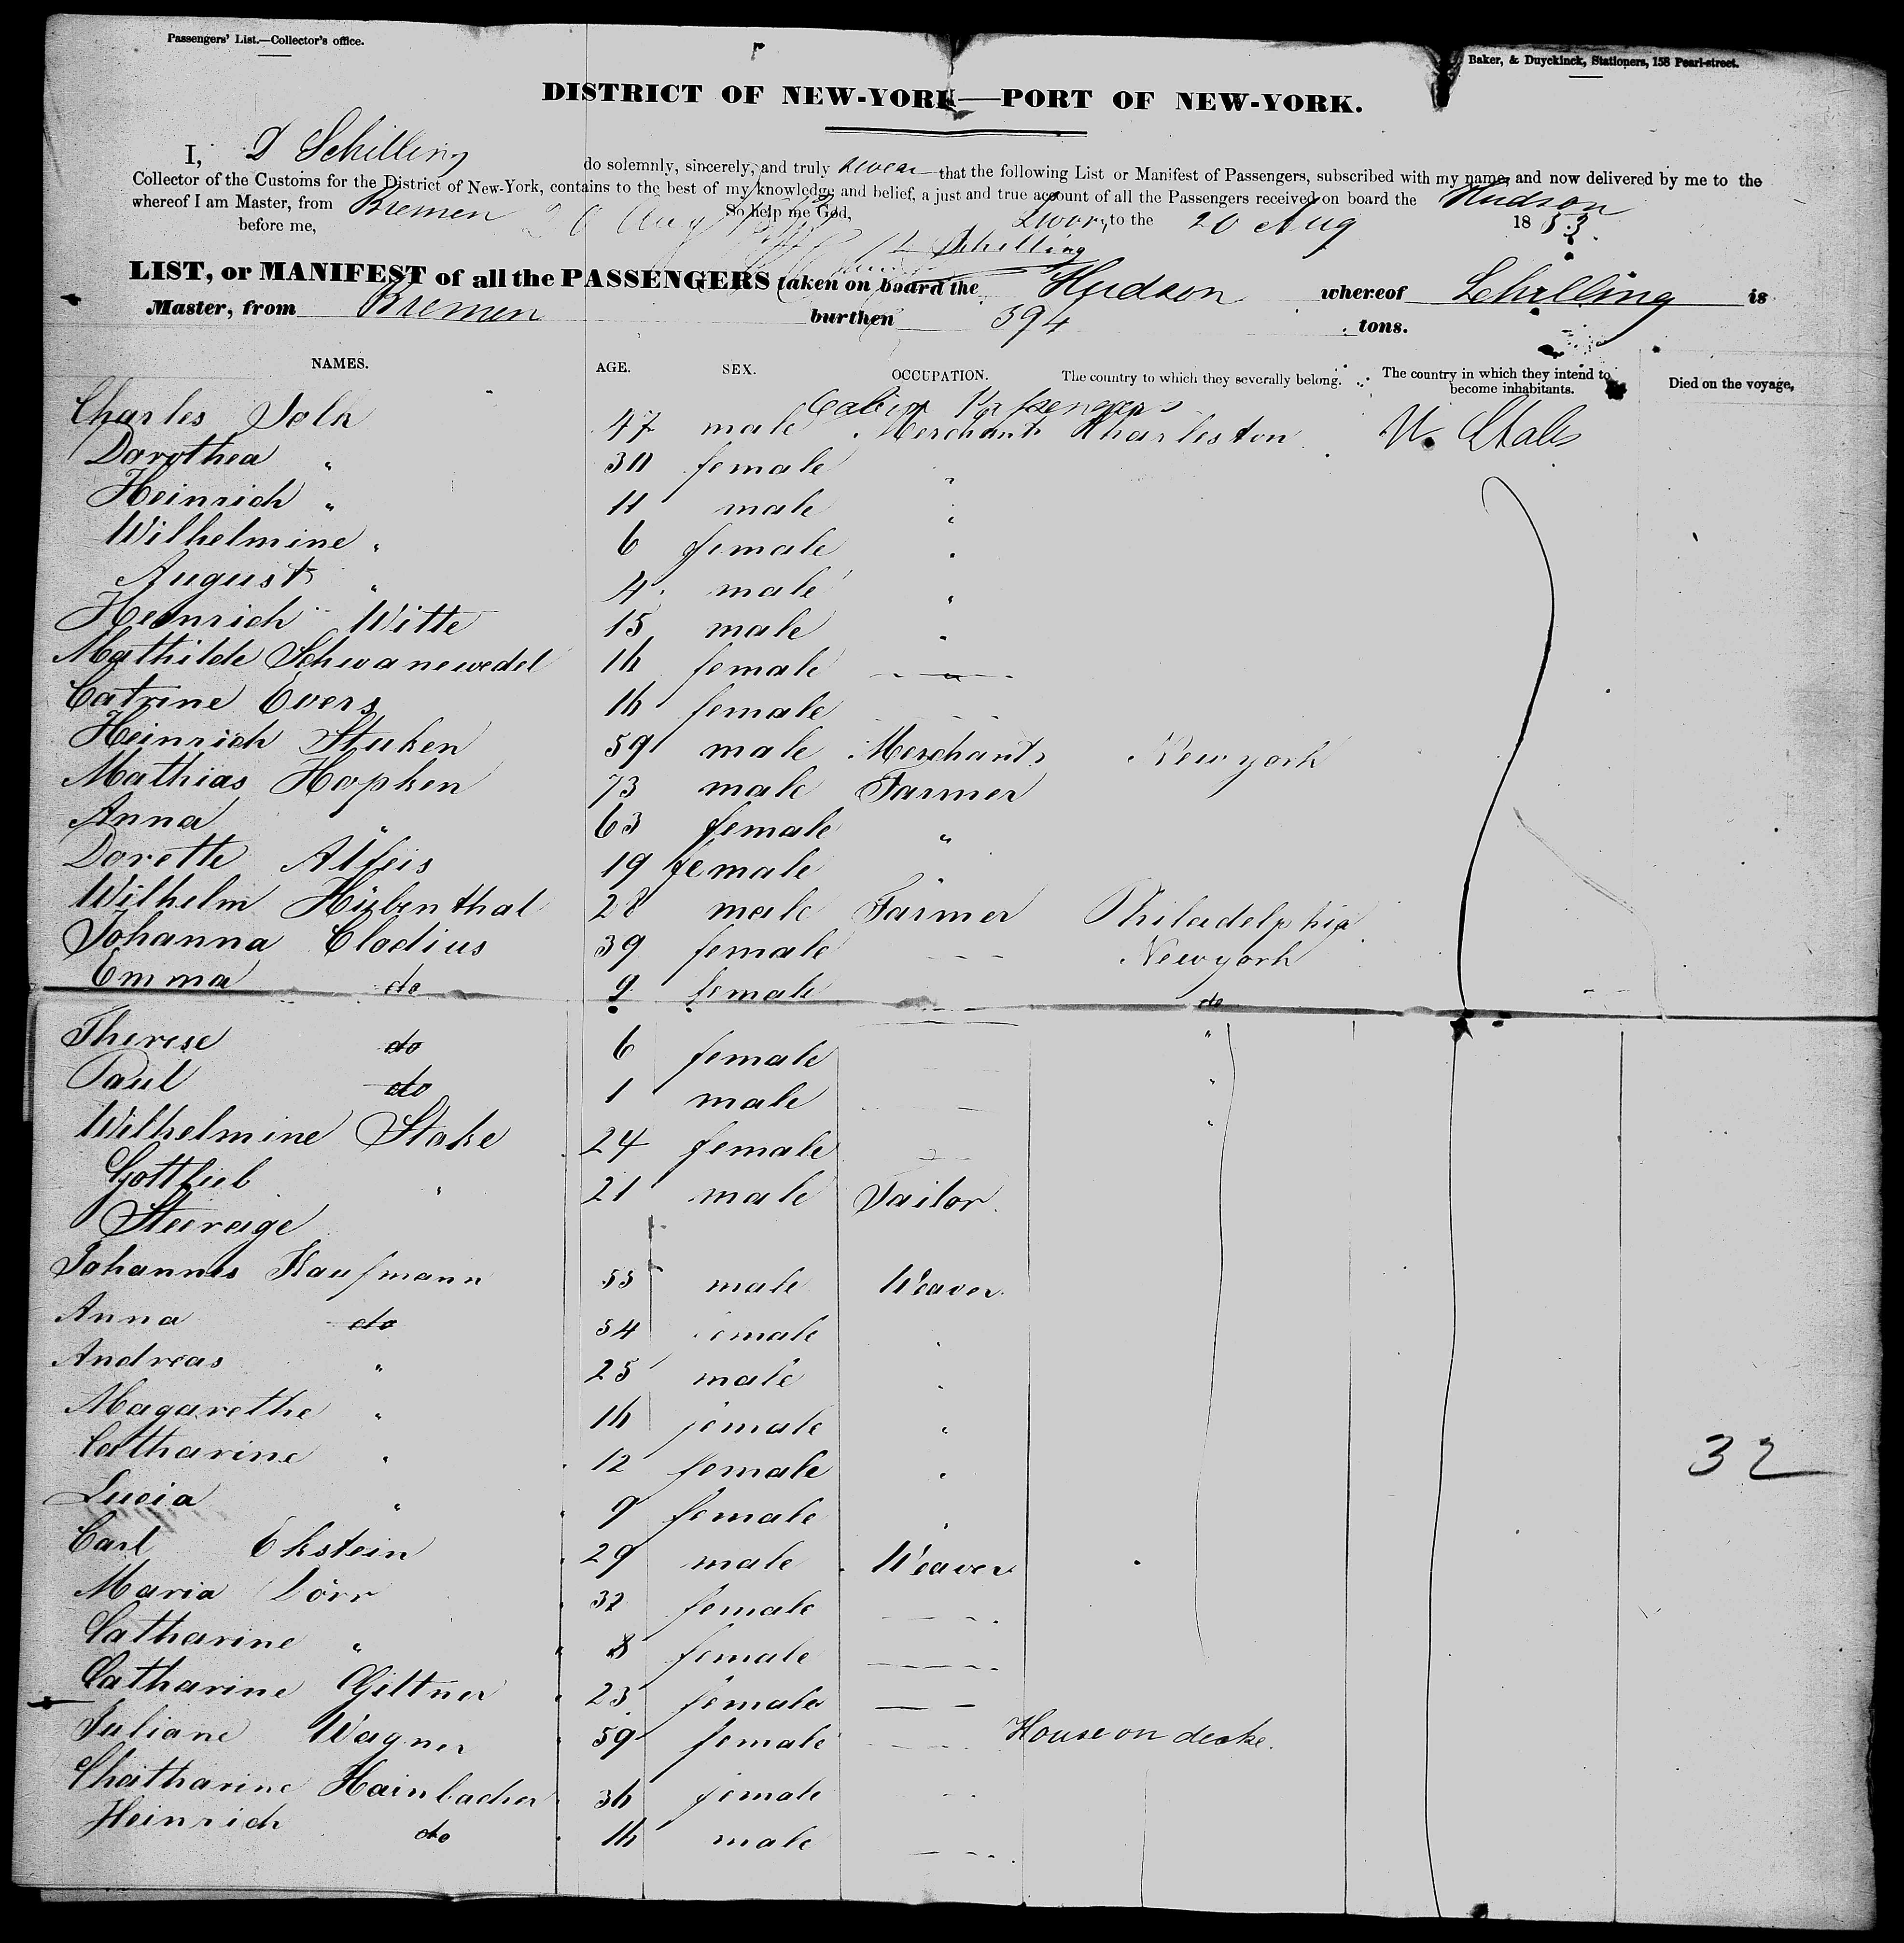 Passengers' List.—Collector's office.
Baker, & Duyckinck, Stationers, 158 Pearl-street.
DISTRICT OF NEW-YORK—PORT OF NEW-YORK.
I, D Schilling do solemnly, sincerely, and truly swear that the following List or Manifest of Passengers, subscribed with my name, and now delivered by me to the
Collector of the Customs for the District of New-York, contains to the best of my knowledge and belief, a just and true account of all the Passengers received on board the Hudson
whereof I am Master, from Bremen So help me God,
Sworn to the 20 Aug 1853.
before me, 20 Aug
D Schilling
LIST, or MANIFEST of all the PASSENGERS taken on board the Hudson whereof Schilling is
Master, from Bremen burthen 594 tons.
NAMES. AGE. SEX. OCCUPATION. The country to which they severally belong. The country in which they intend to become inhabitants. Died on the voyage,
Cabin Passengers
Charles 47 male Merchant Charleston U. States
Dorothea " 30 female "
Heinrich " 11 male "
Wilhelmine " 6 female "
August " 4 male "
Heinrich Witte 15 male "
Mathilde Schwanewedel 16 female
Catrine Evers 16 female
Heinrich Stuken 59 male Merchant Newyork
Mathias Hopken 73 male Farmer
Anna " 63 female "
Dorette 19 female "
Wilhelm Hübenthal 28 male Farmer Philadelphia
Johanna Clodius 39 female Newyork
Emma do 9 female do
Therese do 6 female "
Paul do 1 male "
Wilhelmine Stake 24 female "
Gottlieb " 21 male Tailor.
Steerage
Johannes Kaufmann 55 male Weaver.
Anna do 54 female "
Andreas " 25 male "
Magarethe " 16 female "
Catharine " 12 female "
Lucia " 9 female "
Carl Ekstein 29 male Weaver
Maria Dörr 32 female
Catharine " 8 female
Catharine Giltner 23 female
Juliane Wagner 59 female House on decke.
Chatharine Hainbacher 36 female
Heinrich do 16 male
32